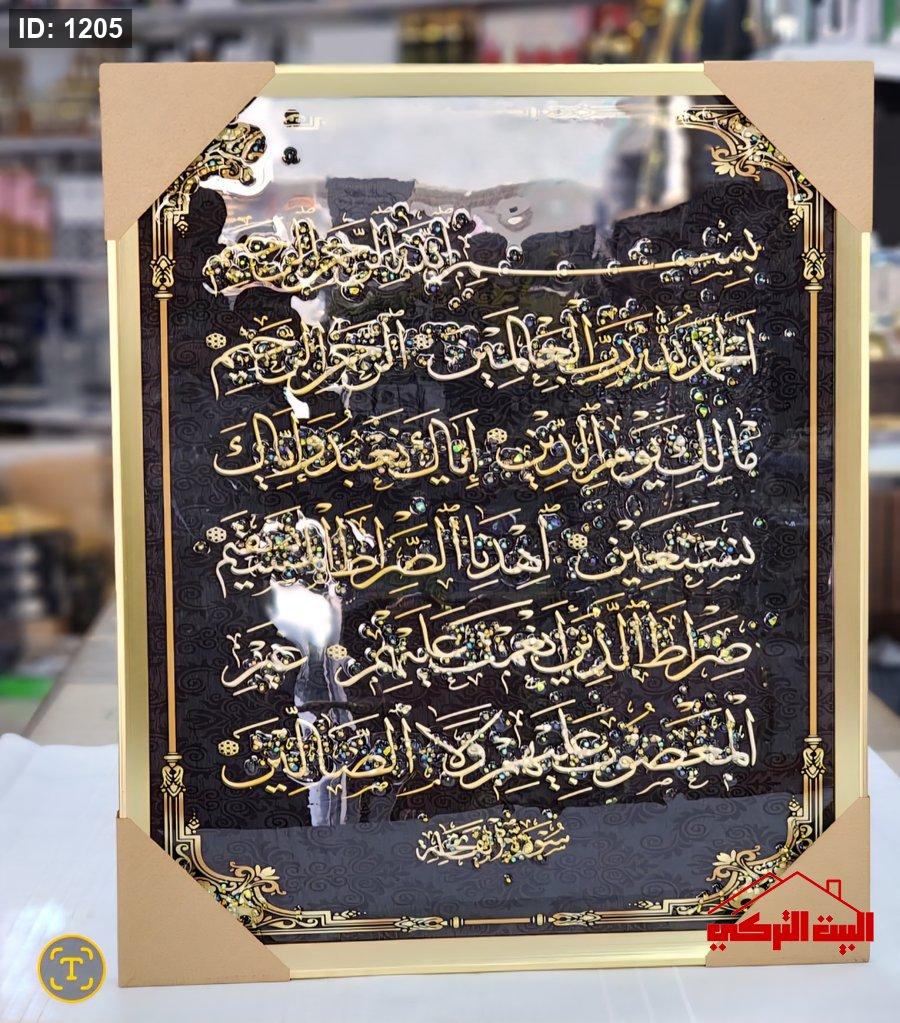 ID: 1205
بِسْمِ اللَّهِ الرَّحْمَٰنِ الرَّحِيمِ
الْحَمْدُ لِلَّهِ رَبِّ الْعَالَمِينَ الرَّحْمَٰنِ الرَّحِيمِ
مَالِكِ يَوْمِ الدِّينِ إِيَّاكَ نَعْبُدُ وَإِيَّاكَ
نَسْتَعِينُ اهْدِنَا الصِّرَاطَ الْمُسْتَقِيمَ
صِرَاطَ الَّذِينَ أَنْعَمْتَ عَلَيْهِمْ غَيْرِ
الْمَغْضُوبِ عَلَيْهِمْ وَلَا الضَّالِّينَ
سورة الفاتحة
البيت التركي
T